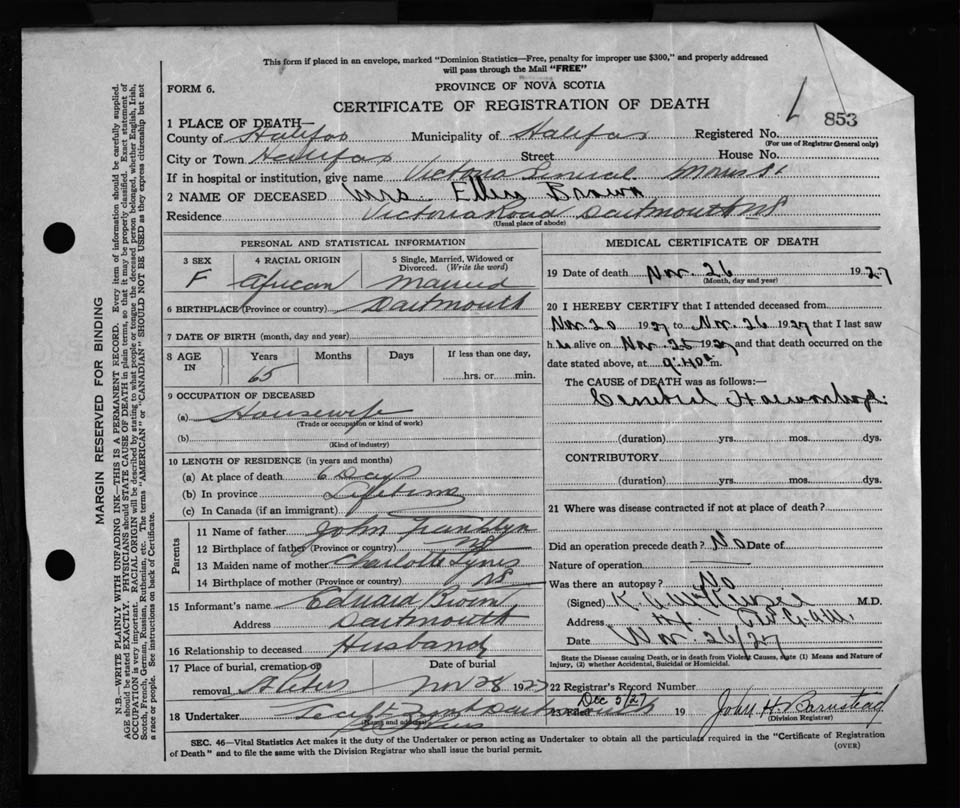 This form if placed in an envelope, marked "Dominion Statistics—Free, penalty for improper use $300," and properly addressed
will pass through the Mail "FREE"
FORM 6.
PROVINCE OF NOVA SCOTIA
CERTIFICATE OF REGISTRATION OF DEATH
853
1 PLACE OF DEATH—
County of Halifax Municipality of Halifax Registered No.
(For use of Registrar General only)
City or Town Halifax Street House No.
If in hospital or institution, give name Victoria General Morris St
2 NAME OF DECEASED Mrs Ellen Brown
Residence Victoria Road Dartmouth NS
(Usual place of abode)
PERSONAL AND STATISTICAL INFORMATION
3 SEX
F
4 RACIAL ORIGIN
African
5 Single, Married, Widowed or
Divorced. (Write the word)
Married
6 BIRTHPLACE (Province or country) Dartmouth
7 DATE OF BIRTH (month, day and year)
8 AGE
IN
Years
65
Months
Days
If less than one day,
hrs. or min.
9 OCCUPATION OF DECEASED
(a) Housewife
(Trade or occupation or kind of work)
(b)
(Kind of industry)
10 LENGTH OF RESIDENCE (in years and months)
(a) At place of death 6 Days
(b) In province Lifetime
(c) In Canada (if an immigrant)
Parents
11 Name of father John Franklyn
12 Birthplace of father (Province or country) NS
13 Maiden name of mother Charlotte
14 Birthplace of mother (Province or country) NS
15 Informant's name Edward
Address Dartmouth
16 Relationship to deceased Husband
17 Place of burial, cremation or
removal St Peters
Date of burial
Nov 28 1927
18 Undertaker Dartmouth
(Name and address)
MEDICAL CERTIFICATE OF DEATH
19 Date of death Nov. 26 1927
(Month, day and year)
20 I HEREBY CERTIFY that I attended deceased from
Nov 20 1927 to Nov. 26 1927 that I last saw
h alive on Nov. 26 1927 and that death occurred on the
date stated above, at 9.40 m.
The CAUSE of DEATH was as follows:—
Cerebral Haemorrhage
(duration) yrs. mos. dys.
CONTRIBUTORY
(duration) yrs. mos. dys.
21 Where was disease contracted if not at place of death?
Did an operation precede death? No Date of
Nature of operation
Was there an autopsy? No
(Signed) M.D.
Address
Date Nov. 26/27
State the Disease causing Death, or in death from Violent Causes, state (1) Means and Nature of
Injury, (2) whether Accidental, Suicidal or Homicidal.
22 Registrar's Record Number
23 Filed Dec 5/27 19 John H. Barnstead
(Division Registrar)
SEC. 46—Vital Statistics Act makes it the duty of the Undertaker or person acting as Undertaker to obtain all the particulars required in the "Certificate of Registration
of Death" and to file the same with the Division Registrar who shall issue the burial permit.
(OVER)
MARGIN RESERVED FOR BINDING
N.B.—WRITE PLAINLY WITH UNFADING INK—THIS IS A PERMANENT RECORD. Every item of information should be carefully supplied.
AGE should be stated EXACTLY. PHYSICIANS should STATE CAUSE OF DEATH in plain terms, so that it may be properly classified. Exact statement of
OCCUPATION is very important. RACIAL ORIGIN will be described by stating to what people or tongue the deceased person belonged, whether English, Irish,
Scotch, French, German, Russian, Ruthenian, etc. The terms "AMERICAN" or "CANADIAN" SHOULD NOT BE USED as they express citizenship but not
a race or people. See instructions on back of Certificate.